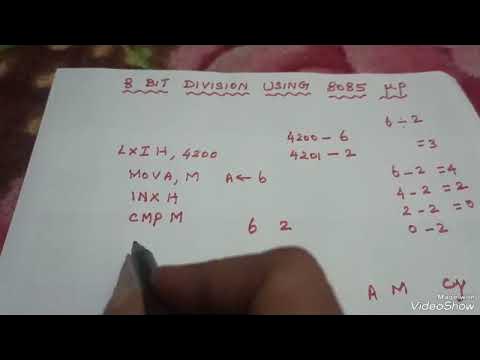 8 BIT DIVISION USING 8085 µP
6 ÷ 2
4200 – 6
= 3
LXI H, 4200
4201 – 2
MOV A, M A ← 6
6 – 2 = 4
INX H
4 – 2 = 2
CMP M
6 2
2 – 2 = 0
0 – 2
A M Cy
Made with
VideoShow